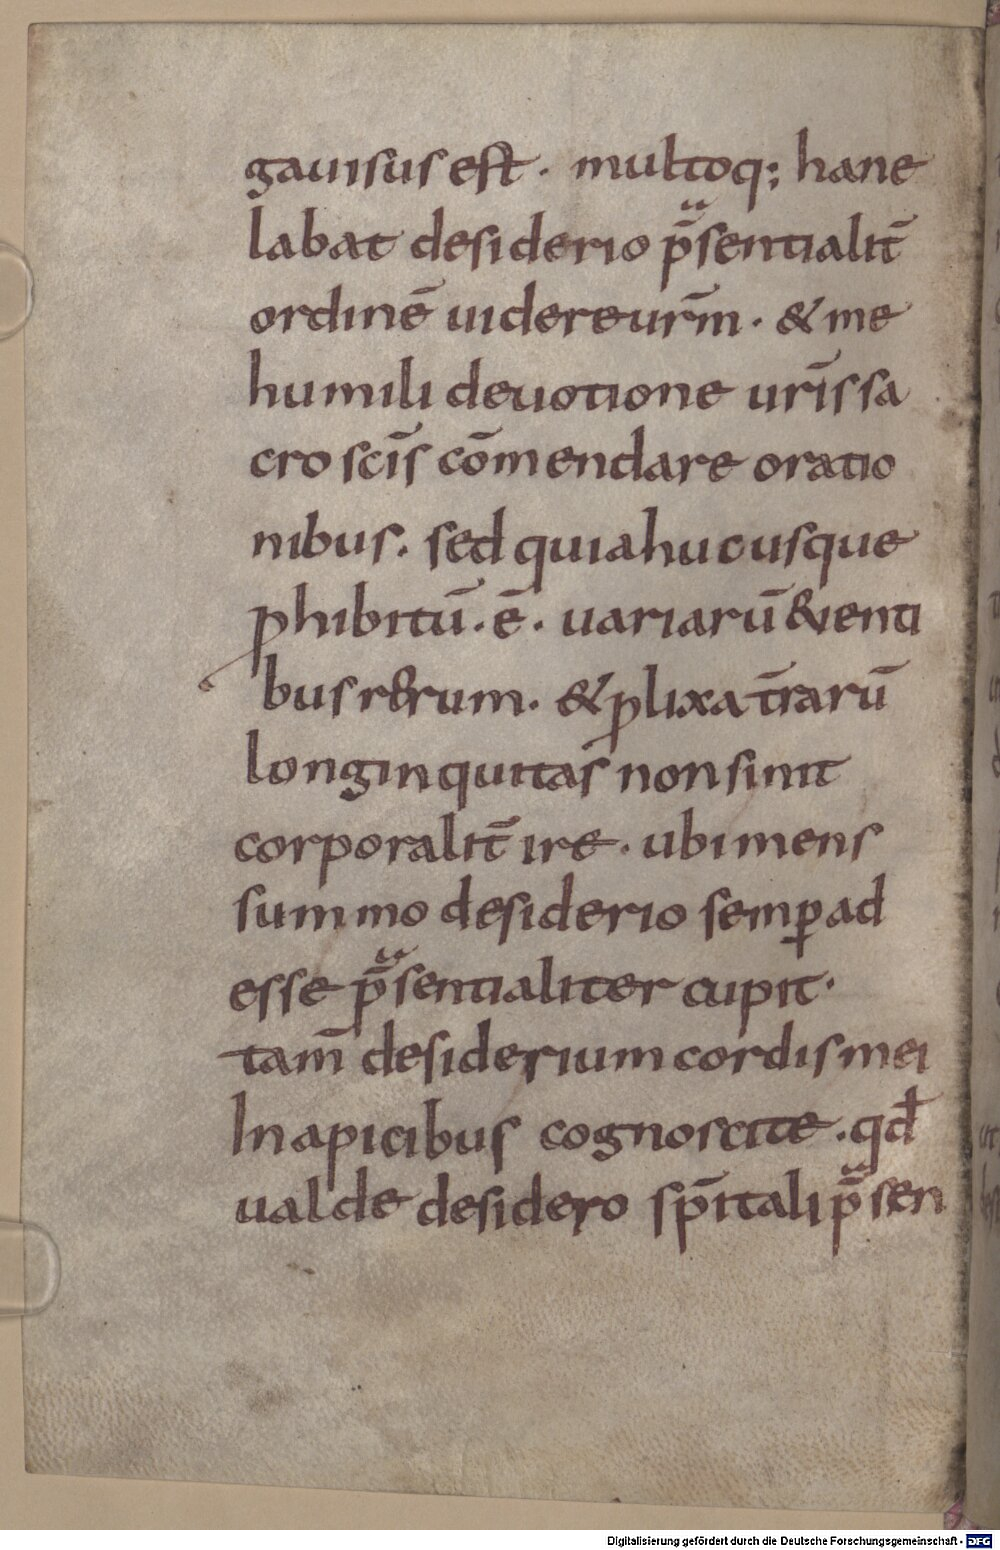 gauisus est · multoq; hane
labat desiderio p̄sentialit̄
ordinē uidere ur̄m · & me
humili deuotione ur̄is sa
cro sc̄is cōmendare oratio
nibus. sed quia hucusque
ꝓhibitū · ē · uariarū &ienti
bus r&rum. & ꝓlixa t̄rarū
longinquitas non sinit
corporalit̄ ire · ubi mens
summo desiderio semꝑ ad
esse p̄sentialiter cupit ·
tam̄ desiderium cordis mei
In apicibus cognoscite · qđ
ualde desidero sp̄itali p̄sen
Digitalisierung gefördert durch die Deutsche Forschungsgemeinschaft - DFG